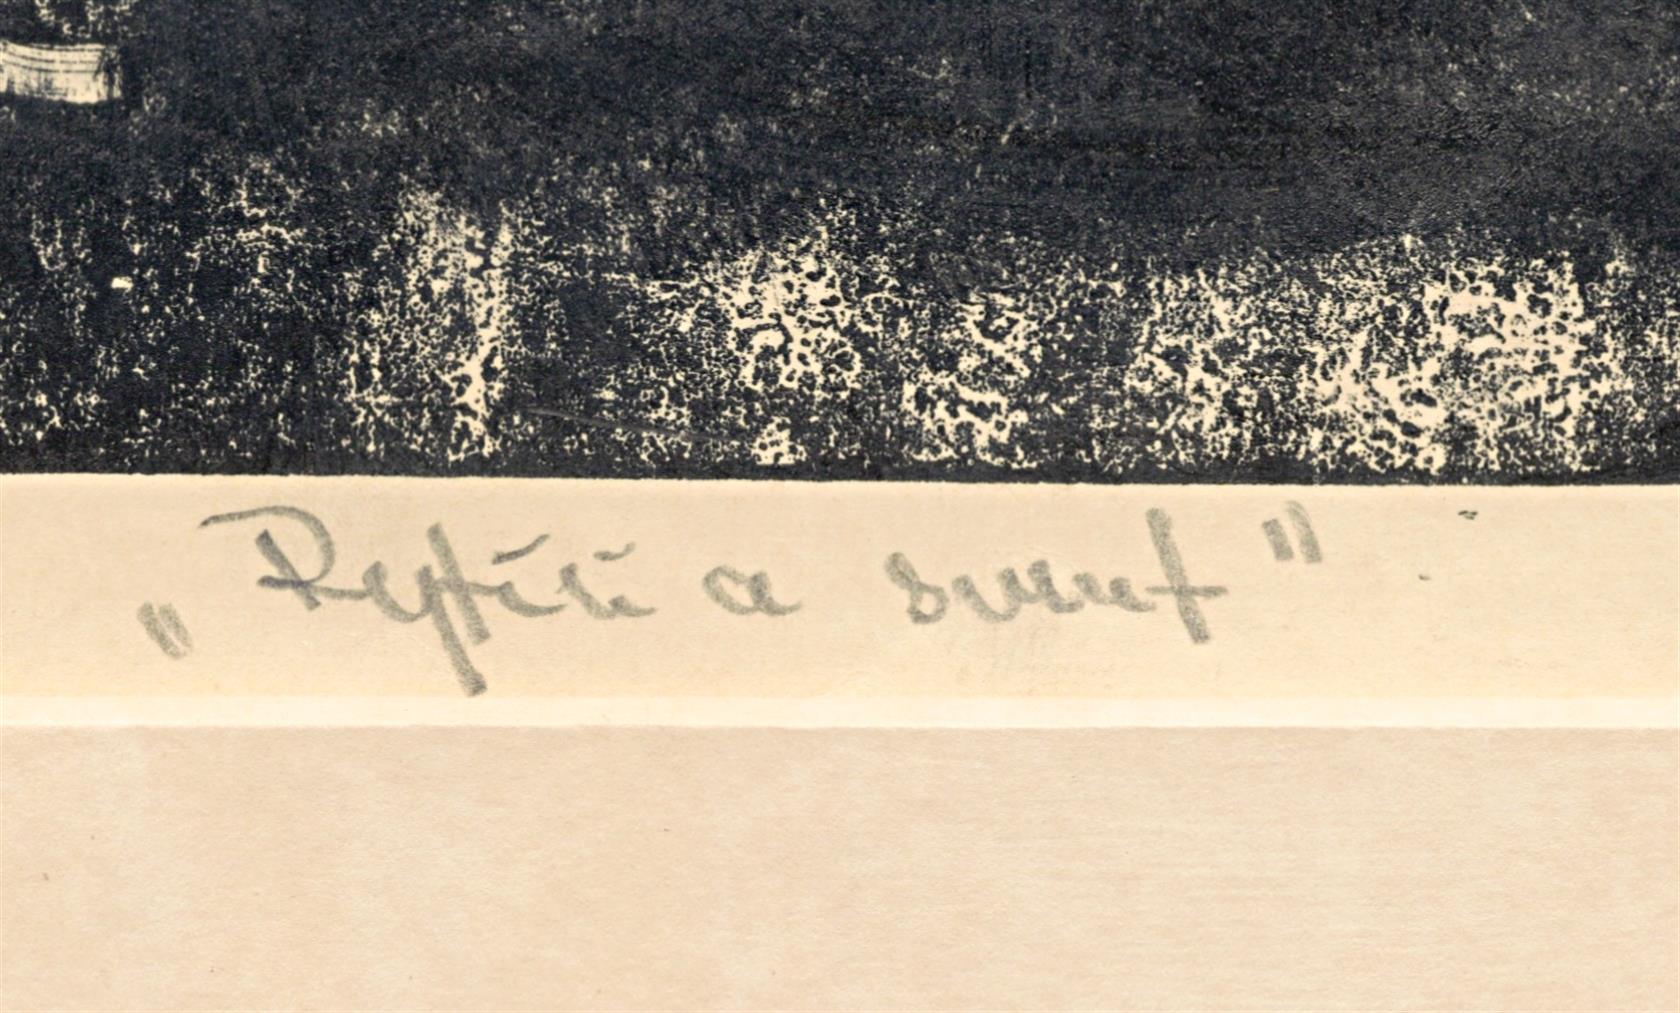 „Rytíř a smrt"